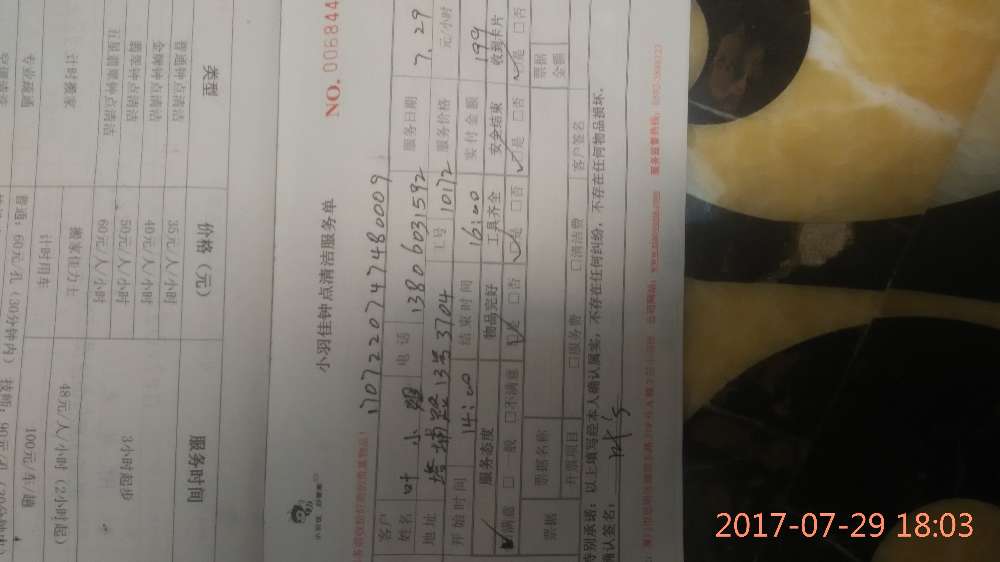 小羽佳钟点清洁服务单
NO. 006844
1707220747480009
客户姓名 叶小 电话 13806031592 服务日期 7.29
地址 塔埔路13号3704 工号 10172 服务价格 元/小时
开始时间 14:00 结束时间 16:00 实付金额 199
服务态度 物品完好 工具齐全 安全结束 收到卡片
☑满意 □一般 □不满意 ☑是 □否 ☑是 □否 ☑是 □否 ☑是 □否
票据 票据名称 票据金额
开票项目 □服务费 □清洁费 客户签名
特别承诺:以上填写经本人确认属实,不存在任何纠纷,不存在任何物品损坏。
确认签名:
服务监督热线:
公司网站:
类型 价格(元) 服务时间
普通钟点清洁 35元/人/小时 3小时起步
金牌钟点清洁 40元/人/小时
50元/人/小时
60元/人/小时
计时搬家 搬家佳力士 48元/人/小时(2小时起)
计时用车 100元/车/趟
专业疏通 普通:60元/孔(30分钟内)
2017-07-29 18:03